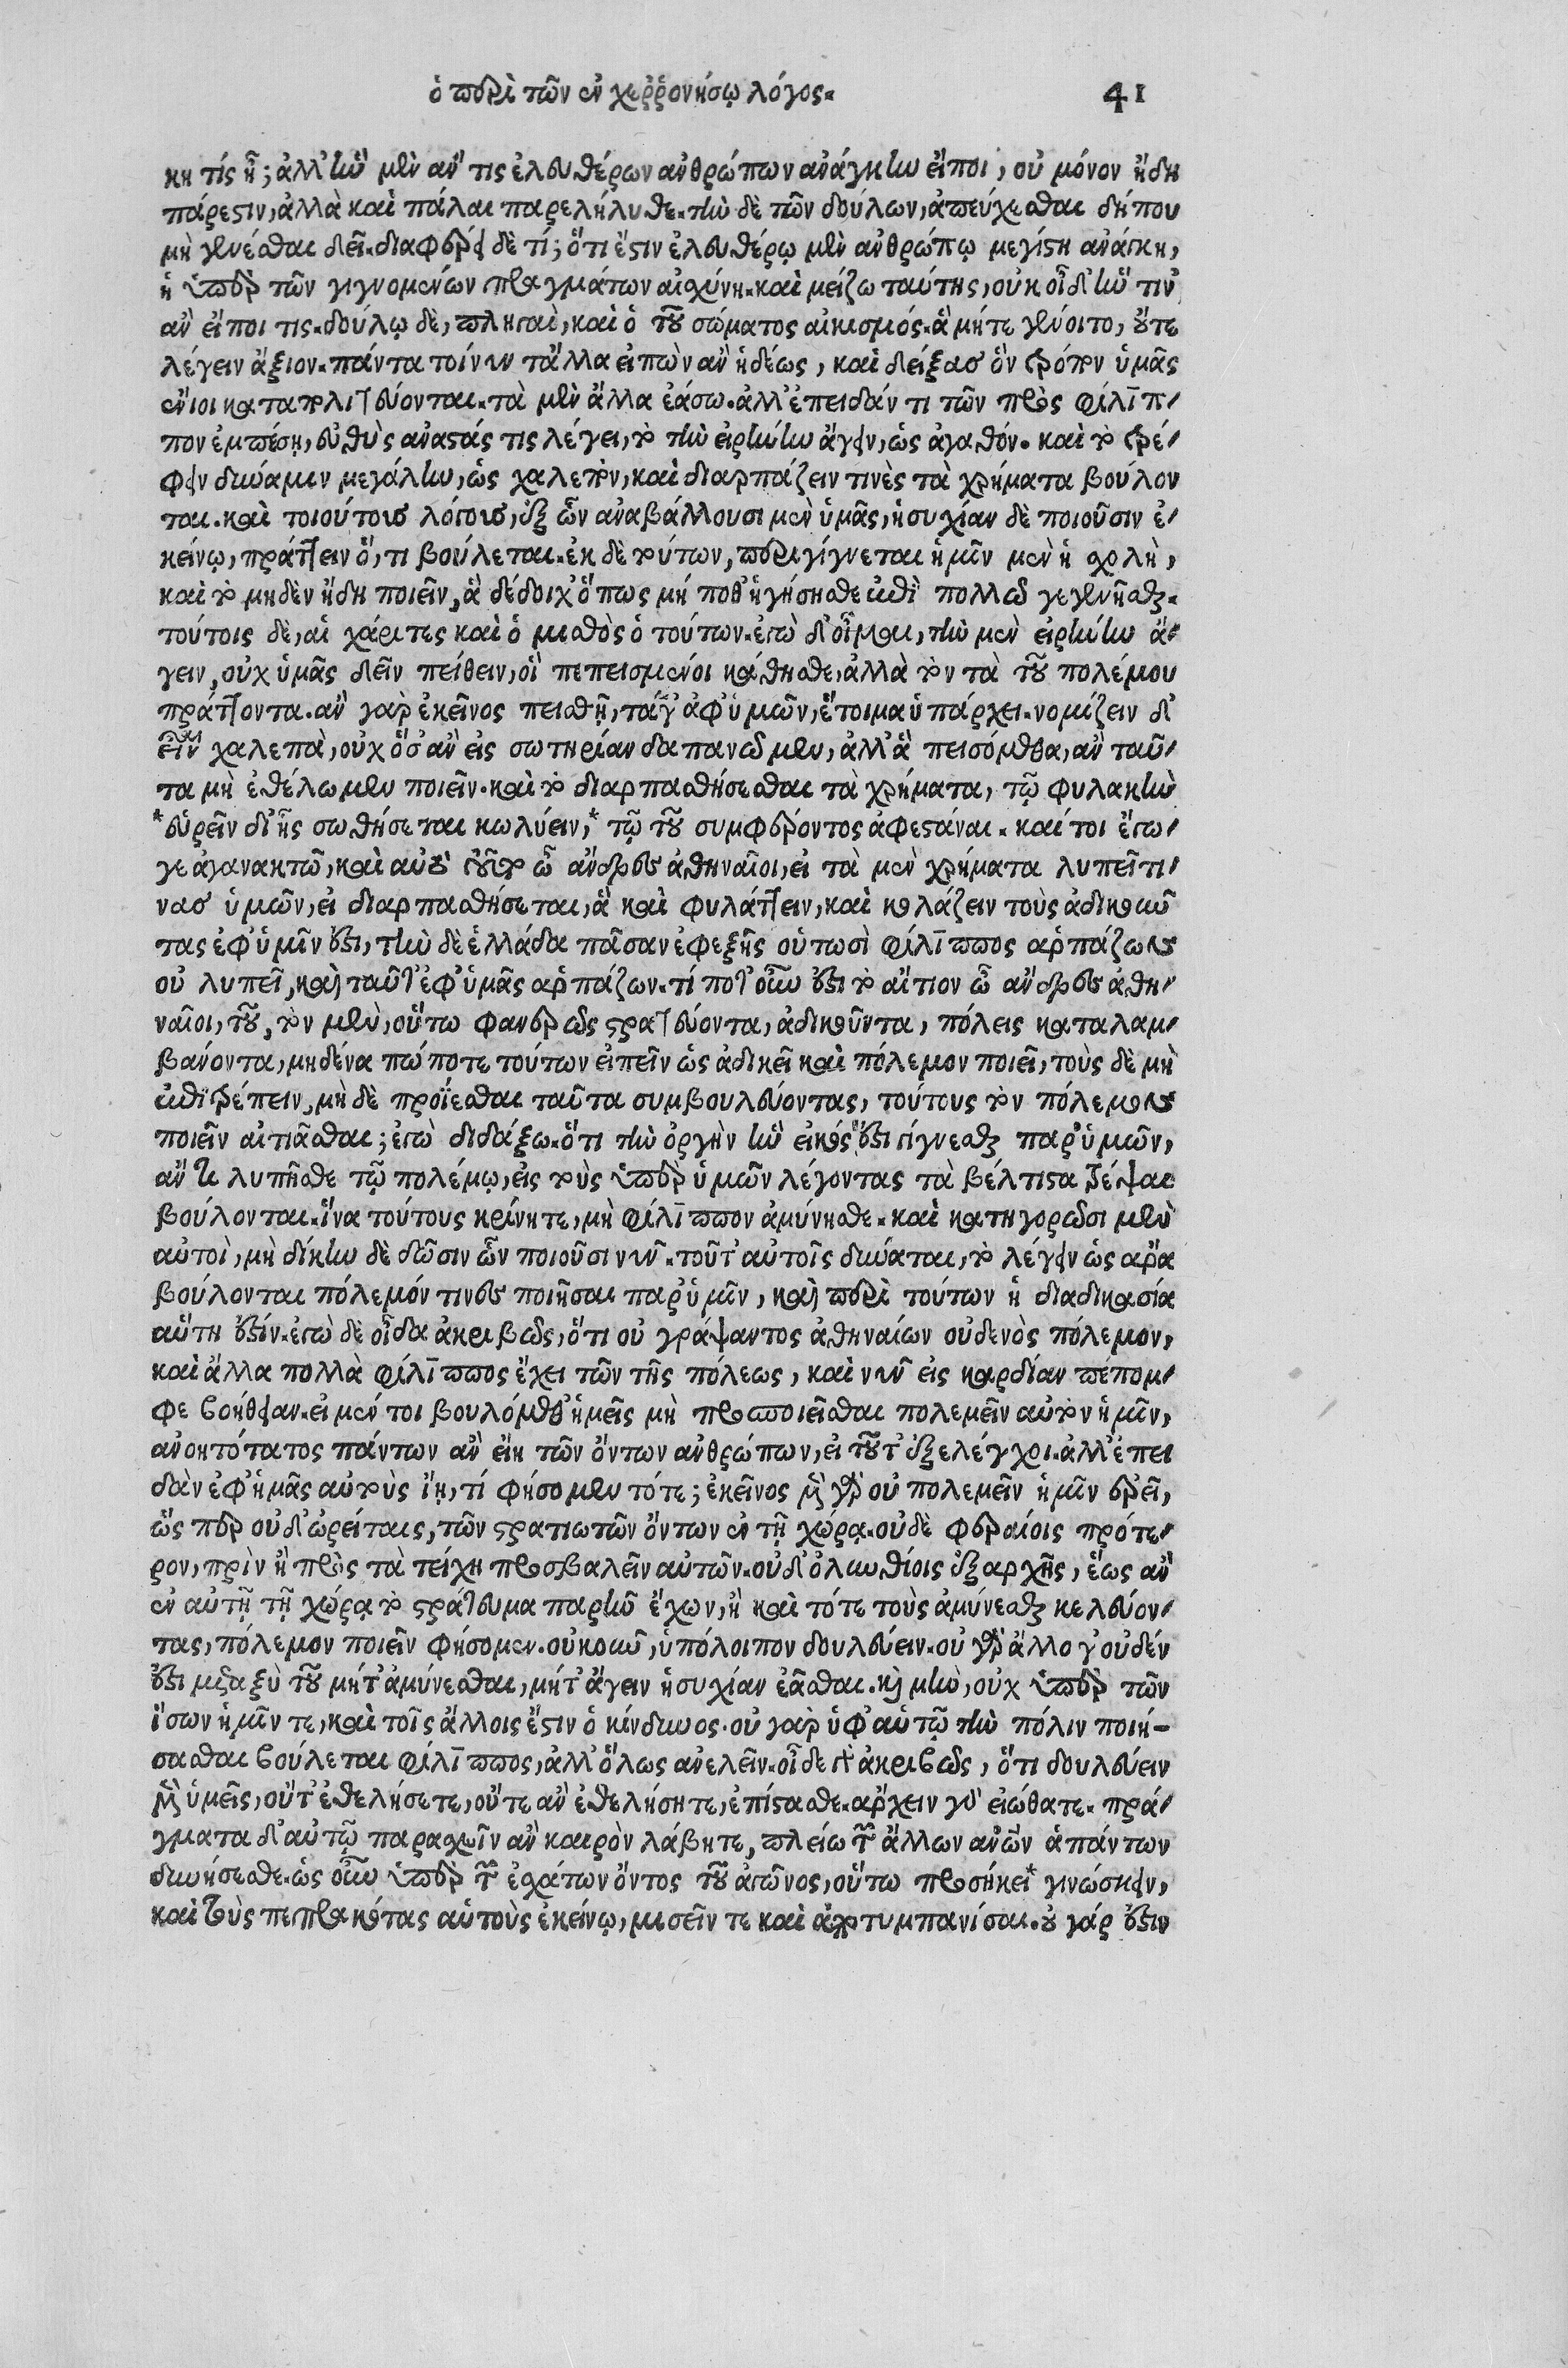 ὁ περὶ τῶν ἐν χερῤονήσῳ λόγος. 41
κη τίς ᾖ; ἀλλ' ἣν μὲν ἄν τις ἐλευθέρων ἀνθρώπων ἀνάγκην εἴποι, οὐ μόνον ἤδη
πάρεστιν, ἀλλὰ καὶ πάλαι παρελήλυθε. τὴν δὲ τῶν δούλων, ἀπεύχεσθαι δήπου
μὴ γενέσθαι δεῖ. διαφέρει δὲ τί; ὅτι ἔστιν ἐλευθέρῳ μὲν ἀνθρώπῳ μεγίστη ἀνάγκη,
ἡ ὑπὲρ τῶν γιγνομένων πραγμάτων αἰσχύνη. καὶ μείζω ταύτης, οὐκ οἶδ' ἥν τιν'
ἂν εἴποι τις. δούλῳ δὲ, πληγαὶ, καὶ ὁ τοῦ σώματος αἰκισμός. ἃ μήτε γένοιτο, οὔτε
λέγειν ἄξιον. πάντα τοίνυν τἄλλα εἰπὼν ἂν ἡδέως, καὶ δείξας ὃν τρόπον ὑμᾶς
ἔνιοι καταπολιτεύονται. τὰ μὲν ἄλλα ἐάσω. ἀλλ' ἐπειδάν τι τῶν πρὸς φίλιπ-
πον ἐμπέσῃ, εὐθὺς ἀναστάς τις λέγει, τὸ τὴν εἰρήνην ἄγειν, ὡς ἀγαθόν. καὶ τὸ τρέ-
φειν δύναμιν μεγάλην, ὡς χαλεπὸν, καὶ διαρπάζειν τινὲς τὰ χρήματα βούλον
ται. καὶ τοιούτους λόγους, ἐξ ὧν ἀναβάλλουσι μὲν ὑμᾶς, ἡσυχίαν δὲ ποιοῦσιν ἐ-
κείνῳ, πράττειν ὅ, τι βούλεται. ἐκ δὲ τούτων, περιγίγνεται ἡμῖν μὲν ἡ σχολὴ,
καὶ τὸ μηδὲν ἤδη ποιεῖν, ἃ δέδοιχ' ὅπως μή ποθ' ἡγήσησθε ἐπὶ πολλῷ γεγενῆσθαι.
τούτοις δὲ, αἱ χάριτες καὶ ὁ μισθὸς ὁ τούτων. ἐγὼ δ' οἶμαι, τὴν μὲν εἰρήνην ἄ-
γειν, οὐχ ὑμᾶς δεῖν πείθειν, οἳ πεπεισμένοι κάθησθε, ἀλλὰ τὸν τὰ τοῦ πολέμου
πράττοντα. ἂν γὰρ ἐκεῖνος πεισθῇ, τά γ' ἀφ' ὑμῶν, ἕτοιμα ὑπάρχει. νομίζειν δ'
εἶναι χαλεπὰ, οὐχ ὅσ' ἂν εἰς σωτηρίαν δαπανῶμεν, ἀλλ' ἃ πεισόμεθα, ἂν ταῦ-
τα μὴ ἐθέλωμεν ποιεῖν. καὶ τὸ διαρπασθήσεσθαι τὰ χρήματα, τῷ φυλακὴν
*εὑρεῖν δι' ἧς σωθήσεται κωλύειν,* τῷ τοῦ συμφέροντος ἀφεστάναι. καίτοι ἔγω-
γε ἀγανακτῶ, καὶ αὐτὸ τοῦτο ὦ ἄνδρες ἀθηναῖοι, εἰ τὰ μὲν χρήματα λυπεῖ τι-
νας ὑμῶν, εἰ διαρπασθήσεται, ἃ καὶ φυλάττειν, καὶ κολάζειν τοὺς ἀδικοῦν
τας ἐφ' ὑμῖν ἐστι, τὴν δὲ ἑλλάδα πᾶσαν ἐφεξῆς οὑτωσὶ φίλιππος ἁρπάζων
οὐ λυπεῖ, καὶ ταῦτ' ἐφ' ὑμᾶς ἁρπάζων. τί ποτ' οὖν ἐστι τὸ αἴτιον ὦ ἄνδρες ἀθη-
ναῖοι, τοῦ, τὸν μὲν, οὕτω φανερῶς στρατεύοντα, ἀδικοῦντα, πόλεις καταλαμ-
βάνοντα, μηδένα πώποτε τούτων εἰπεῖν ὡς ἀδικεῖ καὶ πόλεμον ποιεῖ, τοὺς δὲ μὴ
ἐπιτρέπειν, μὴ δὲ προΐεσθαι ταῦτα συμβουλεύοντας, τούτους τὸν πόλεμον
ποιεῖν αἰτιᾶσθαι; ἐγὼ διδάξω. ὅτι τὴν ὀργὴν ἣν εἰκός ἐστι γίγνεσθαι παρ' ὑμῶν,
ἄν τι λυπῆσθε τῷ πολέμῳ, εἰς τοὺς ὑπὲρ ὑμῶν λέγοντας τὰ βέλτιστα τρέψαι
βούλονται. ἵνα τούτους κρίνητε, μὴ φίλιππον ἀμύνησθε. καὶ κατηγορῶσι μὲν
αὐτοὶ, μὴ δίκην δὲ δῶσιν ὧν ποιοῦσι νῦν. τοῦτ' αὐτοῖς δύναται, τὸ λέγειν ὡς ἄρα
βούλονται πόλεμόν τινες ποιῆσαι παρ' ὑμῖν, καὶ περὶ τούτων ἡ διαδικασία
αὕτη ἐστίν. ἐγὼ δὲ οἶδα ἀκριβῶς, ὅτι οὐ γράψαντος ἀθηναίων οὐδενὸς πόλεμον,
καὶ ἄλλα πολλὰ φίλιππος ἔχει τῶν τῆς πόλεως, καὶ νῦν εἰς καρδίαν πέπομ-
φε βοήθειαν. εἰ μέν τοι βουλόμεθ' ἡμεῖς μὴ προσποιεῖσθαι πολεμεῖν αὐτὸν ἡμῖν,
ἀνοητότατος πάντων ἂν εἴη τῶν ὄντων ἀνθρώπων, εἰ τοῦτ' ἐξελέγχοι. ἀλλ' ἐπει
δὰν ἐφ' ἡμᾶς αὐτοὺς ἴῃ, τί φήσομεν τότε; ἐκεῖνος μὲν γὰρ οὐ πολεμεῖν ἡμῖν ἐρεῖ,
ὥς περ οὐδ' ὠρείταις, τῶν στρατιωτῶν ὄντων ἐν τῇ χώρᾳ. οὐδὲ φεραίοις πρότε-
ρον, πρὶν ἢ πρὸς τὰ τείχη προσβαλεῖν αὐτῶν. οὐδ' ὀλυνθίοις ἐξαρχῆς, ἕως ἂν
ἐν αὐτῇ τῇ χώρᾳ τὸ στράτευμα παρῆν ἔχων, ἢ καὶ τότε τοὺς ἀμύνεσθαι κελεύον-
τας, πόλεμον ποιεῖν φήσομεν. οὐκοῦν, ὑπόλοιπον δουλεύειν. οὐ γὰρ ἄλλο γ' οὐδέν
ἐστι μεταξὺ τοῦ μήτ' ἀμύνεσθαι, μήτ' ἄγειν ἡσυχίαν ἐᾶσθαι. καὶ μὴν, οὐχ ὑπὲρ τῶν
ἴσων ἡμῖν τε, καὶ τοῖς ἄλλοις ἔστιν ὁ κίνδυνος. οὐ γὰρ ὑφ' αὑτῷ τὴν πόλιν ποιή-
σασθαι βούλεται φίλιππος, ἀλλ' ὅλως ἀνελεῖν. οἶδε γὰρ ἀκριβῶς, ὅτι δουλεύειν
μὲν ὑμεῖς, οὔτ' ἐθελήσετε, οὔτε ἂν ἐθελήσητε, ἐπίστασθε. ἄρχειν γὰρ εἰώθατε. πρά-
γματα δ' αὐτῷ παρασχεῖν ἂν καιρὸν λάβητε, πλείω τῶν ἄλλων ἀνθρώπων ἁπάντων
δυνήσεσθε. ὡς οὖν ὑπὲρ τῶν ἐσχάτων ὄντος τοῦ ἀγῶνος, οὕτω προσήκει* γινώσκειν,
καὶ τοὺς πεπρακότας αὑτοὺς ἐκείνῳ, μισεῖν τε καὶ ἀποτυμπανίσαι. οὐ γάρ ἐστιν